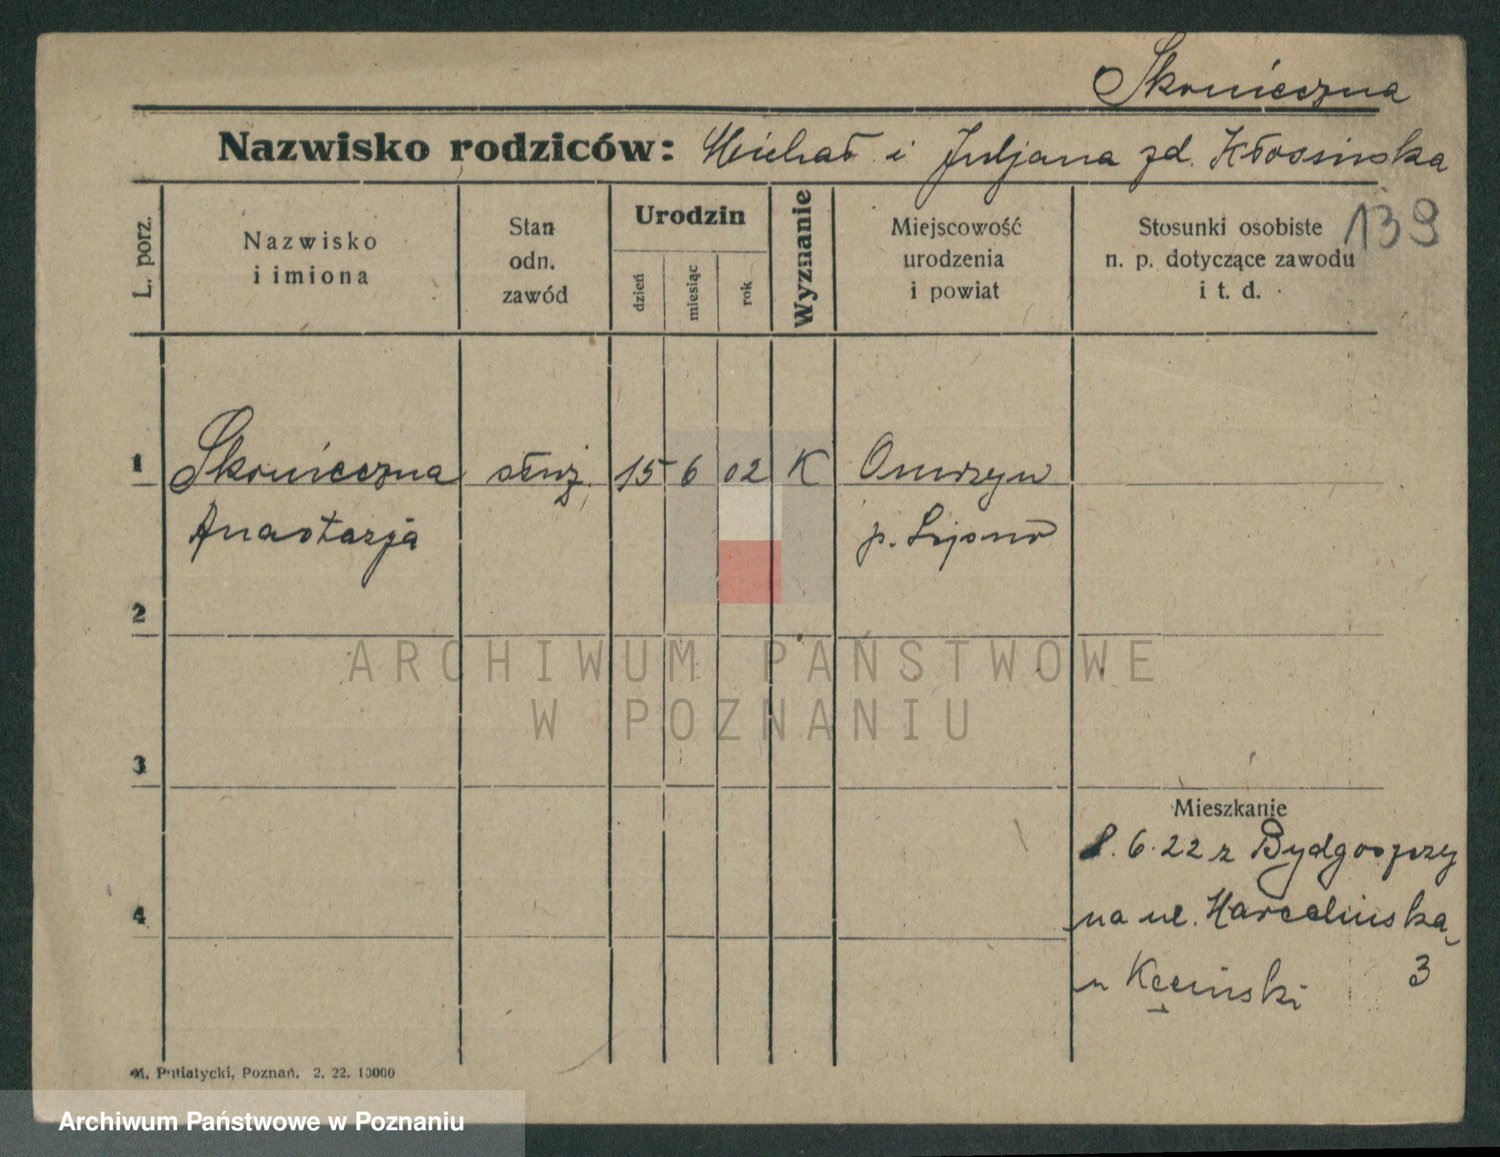 Skonieczna
Nazwisko rodziców: Michał i Juljana zd. Kłosinska
139
L. porz.
Nazwisko
i imiona
Stan
odn.
zawód
Urodzin
dzień
miesiąc
rok
Wyznanie
Miejscowość
urodzenia
i powiat
Stosunki osobiste
n. p. dotyczące zawodu
i t. d.
1 Skonieczna służ. 15 6 02 K
Anastazja p. Lipno
2
3
4
Mieszkanie
8. 6. 22 z Bydgoszczy
na ul. Marcelinską
3
ARCHIWUM PAŃSTWOWE
W POZNANIU
M. Putiatycki, Poznań. 2. 22. 10000
Archiwum Państwowe w Poznaniu